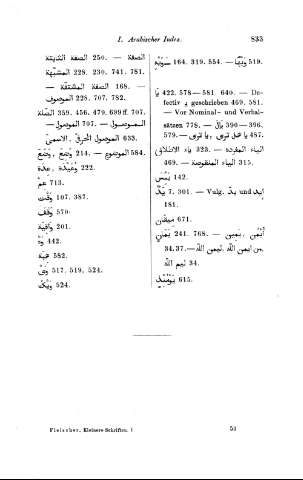 I. Arabischer Index. 833
الصفة — 250. الصفة الثابتة
المشبّهة 228. 230. 741. 781.
— الصفة المشتقة 168. —
الموصوف 228. 707. 782.
الصلة 359. 456. 470. 699 ff. 707.
— الموصول 707. — الموصول
الموصول الحرفى, الاسمى 633.
وضع, وضع 214. — الموضوع 584.
وعيدة, عدة 222.
عم 713.
وقت 107. 387.
وقف 570.
واقية 201.
ود 442.
عية 582.
وى 517. 519. 524.
ويك 524.
164. 319. 554. — 519.
يا 422. 578—581. 640. — De-
fectiv geschrieben 469. 581.
— Vor Nominal- und Verbal-
sätzen 778. — يالَ 390—396.
579. — يا ترى. يا هل ترى 487.
الياء المفردة 323. — ياء الاطلاق
469. — الياء المنقوصة 315.
يبس 142.
يد 7. 301. — Vulg. يد und ايد
181.
ميقان 671.
يمين 241. 768. — يمين, أيمن
34. 37. — من ايمن الله. ليمن الله
ليم الله 34.
يومئذ 615.
Fleischer, Kleinere Schriften. I 53